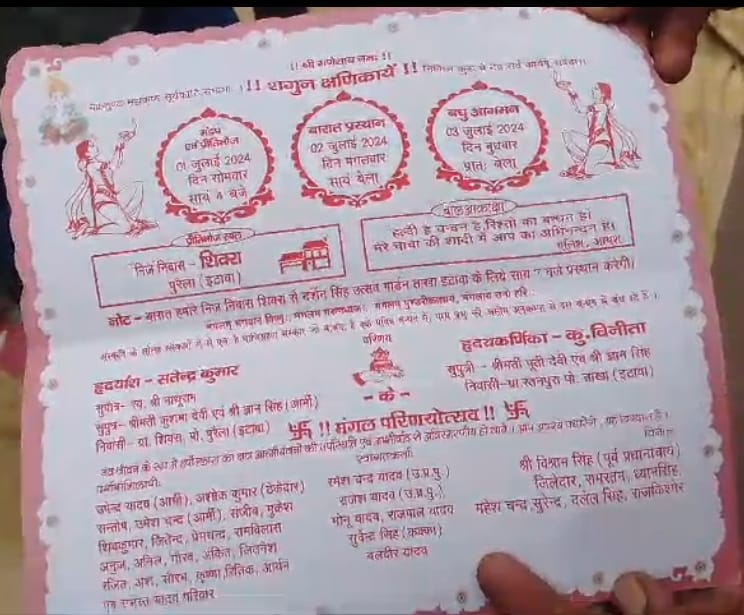 !! श्री गणेशाय नमः !!
वक्रतुण्ड महाकाय सूर्यकोटि समप्रभ ।
!! शगुन क्षणिकायें !!
मंडप
एवं प्रीतिभोज
01 जुलाई 2024
दिन सोमवार
सायं 4 बजे
बारात प्रस्थान
02 जुलाई 2024
दिन मंगलवार
सायं बेला
बधु आगमन
03 जुलाई 2024
दिन बुधवार
प्रातः बेला
प्रीतिभोज स्थल
निज निवास - शिवरा
पुरैला (इटावा)
बालआकांक्षा
हल्दी है चन्दन है रिश्तों का बन्धन है।
मेरे चाचा की शादी में आप का अभिनन्दन है।
नोट - बारात हमारे निज निवास शिवरा से दर्शन सिंह उत्सव गार्डन ताखा इटावा के लिये सायं 7 बजे प्रस्थान करेगी।
परिणय
हृदयांश - सतेन्द्र कुमार
सुपौत्र- स्व. श्री नाथूराम
सुपुत्र- श्रीमती कुशमा देवी एवं श्री ज्ञान सिंह (आर्मी)
निवासी- ग्रा. शिवरा, पो. पुरैला (इटावा)
हृदयकर्णिका - कु. विनीता
सुपुत्री - श्रीमती पूती देवी एवं श्री ज्ञान सिंह
निवासी-ग्रा रतनपुरा पो. ताखा (इटावा)
- के -
!! मंगल परिणयोत्सव !!
दर्शनाभिलाषी:
उपेन्द्र यादव (आर्मी), अशोक कुमार (ठेकेदार)
सन्तोष, उमेश चन्द (आर्मी), संजीव, मुकेश
शिवकुमार, जितेन्द्र, प्रेमचन्द्र, रामविलास
अनुज, अनिल, गौरव, अंकित, जितनेश
रंजित, अंश, सौरभ, कृष्णा, रितिक, आर्यन
एवं समस्त यादव परिवार
स्वागतकर्ता
रमेश चन्द्र यादव (उ.प्र.पु.)
बृजेश यादव (उ.प्र.पु.)
मोनू यादव, राजपाल यादव
सुरेन्द्र सिंह (कक्का)
बलवीर यादव
श्री विश्राम सिंह (पूर्व प्रधानाचार्य)
जिलेदार, रामरतन, ध्यानसिंह,
महेश चन्द्र, सुरेन्द्र, दलेल सिंह, राजकिशोर